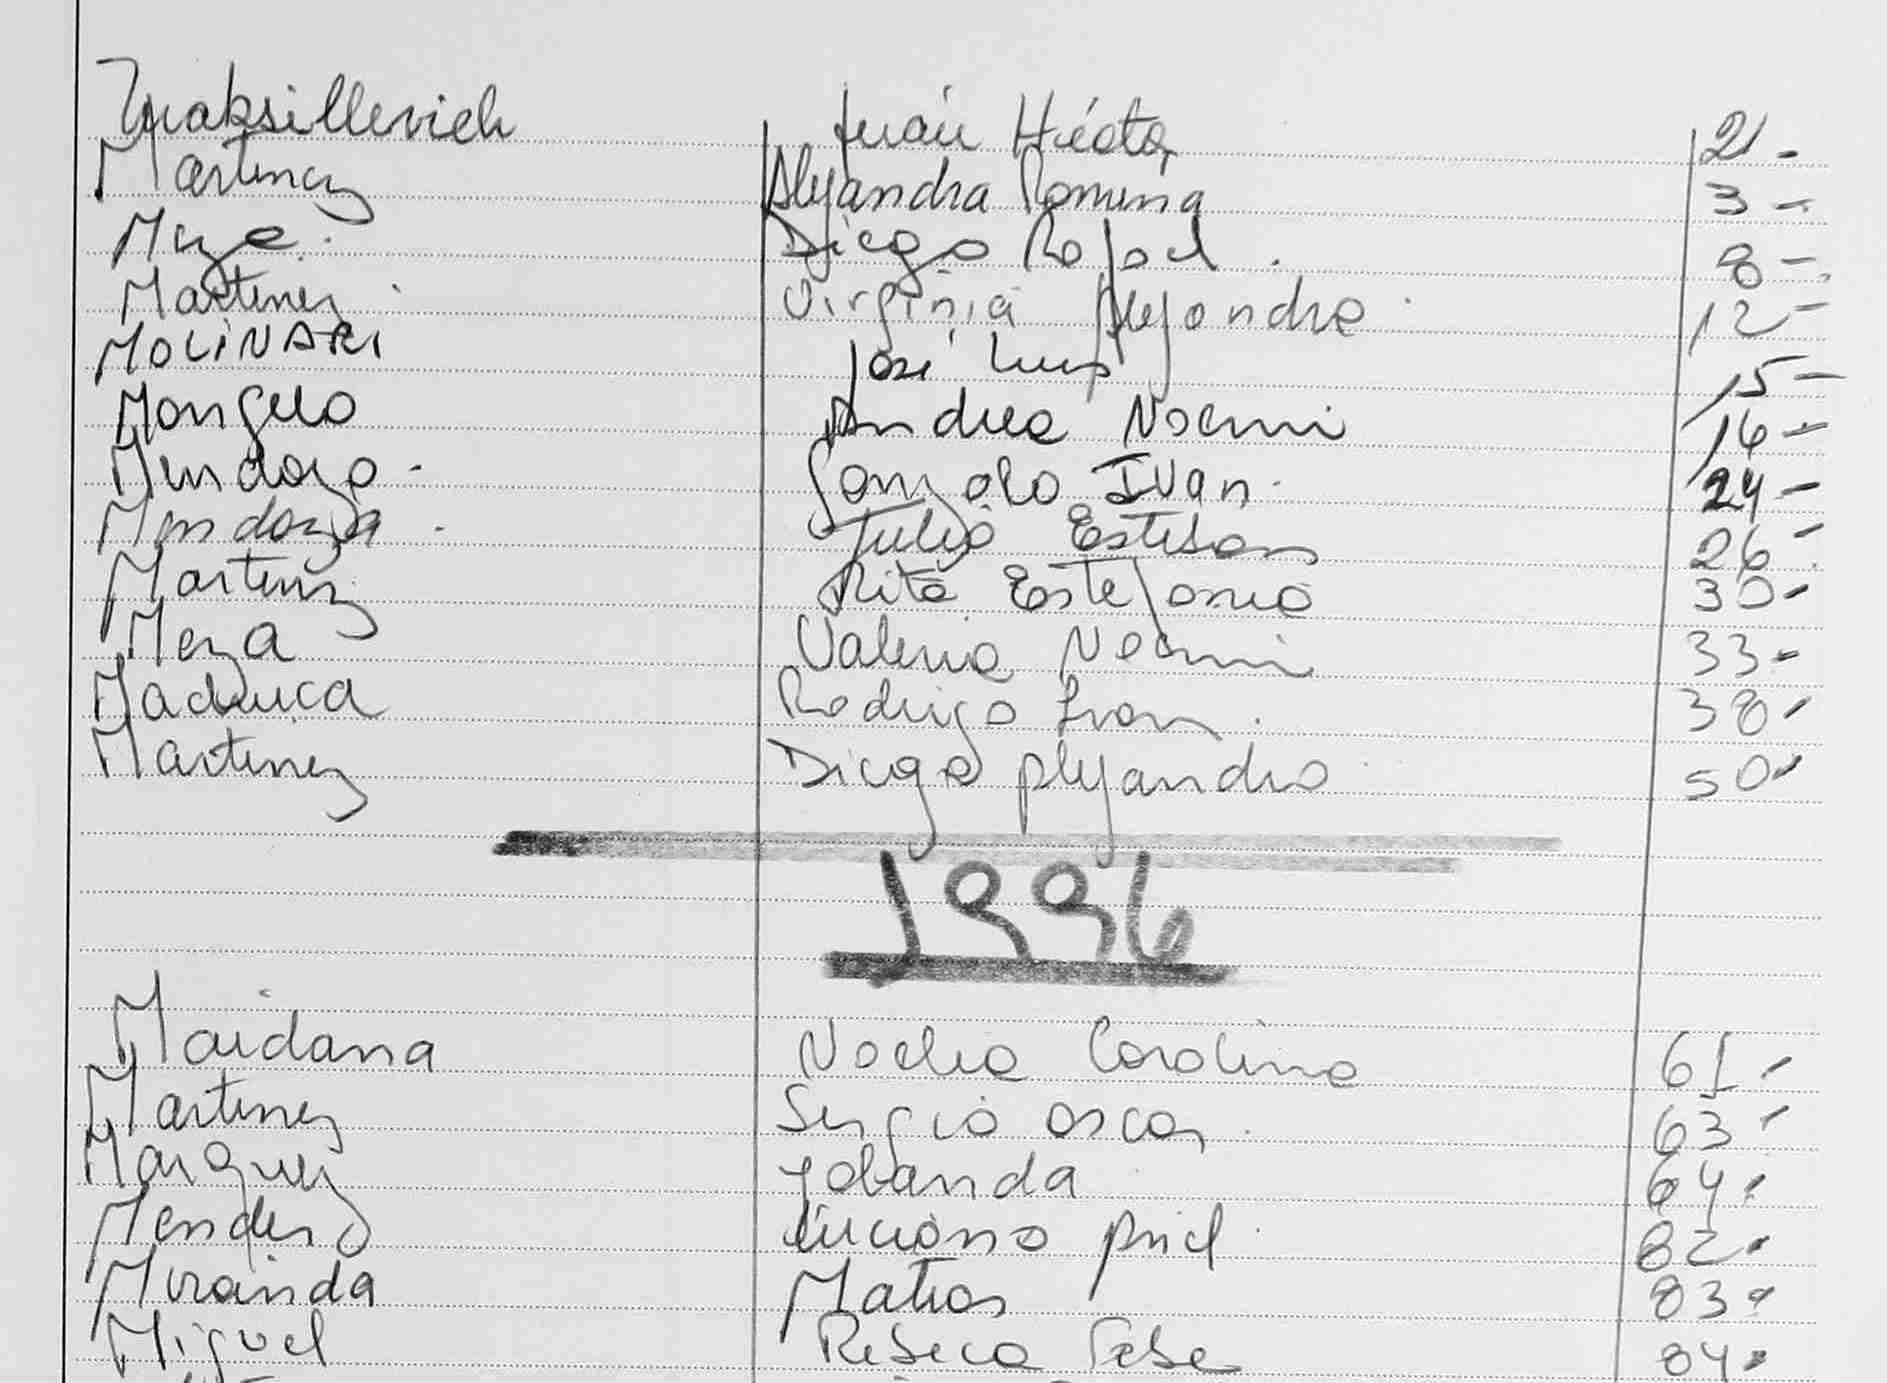 Maksillevich Juan Héctor 2-
Martinez Alejandra Romina 3-
Meza. Diego Rafael. 8-
Martinez. Virginia Alejandra. 12-
MOLINARI José Luis 15-
Mongelo Andrea Noemi 16-
Mendoza. Gonzalo Ivan. 24-
Mendoza. Julio Esteban 26-
Martinez Rita Estefania 30-
Meza Valeria Noemi 33-
Rodrigo Ivan. 38-
Martinez Diego Alejandro 50-
1996
Maidana Noelia Carolina 61-
Martinez Sergio Oscar. 63-
Marquez Yolanda 64-
Mendez Luciano Ariel. 82-
Miranda Matias 83-
Miguel Rebeca 84-